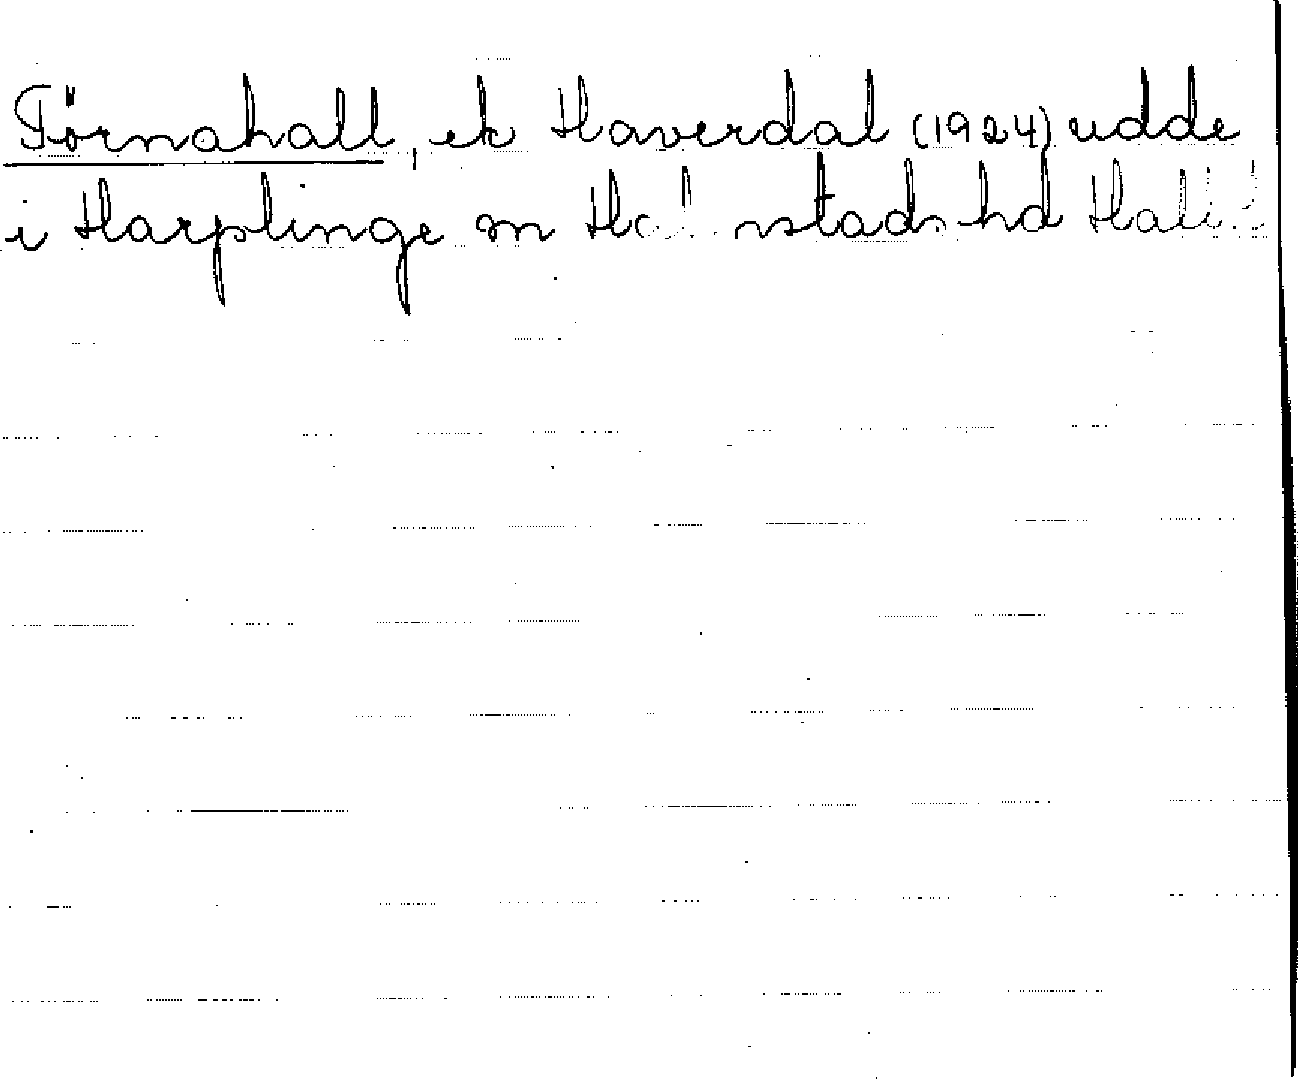 Törnahall, ek Haverdal (1924) udde
i Harplinge sn Halmstads hd Hall